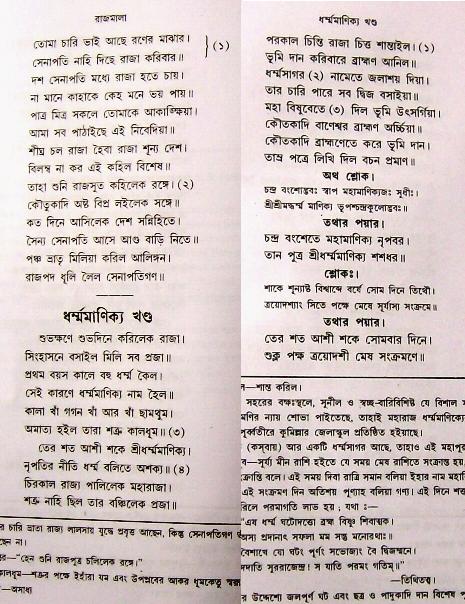 রাজমালা
তোমা চারি ভাই আছে রণের মাঝার।
সেনাপতি নাহি দিছে রাজা করিবার॥ } (১)
দশ সেনাপতি মধ্যে রাজা হতে চায়।
না মানে কাহাকে কেহ মনে ভয় পায়॥
পাত্র মিত্র সকলে তোমাকে আকাঙ্ক্ষিয়া।
আমা সব পাঠাইছে এই নিবেদিয়া॥
শীঘ্র চল রাজা হৈবা রাজ্য শূন্য দেশ।
বিলম্ব না কর এই কহিল বিশেষ॥
তাহা শুনি রাজসুত কহিলেক রঙ্গে। (২)
কৌতুকাদি অষ্ট বিপ্র লইলেক সঙ্গে॥
কত দিনে আসিলেক দেশ সন্নিহিতে।
সৈন্য সেনাপতি আসে আগু বাড়ি নিতে॥
পঞ্চ ভ্রাতৃ মিলিয়া করিল আলিঙ্গন।
রাজপদ ধূলি লৈল সেনাপতিগণ॥
ধর্ম্মমাণিক্য খণ্ড
শুভক্ষণে শুভদিনে করিলেক রাজা।
সিংহাসনে বসাইল মিলি সব প্রজা॥
প্রথম বয়স কালে বহু ধর্ম্ম কৈল।
সেই কারণে ধর্ম্মমাণিক্য নাম হৈল॥
কালা খাঁ গগন খাঁ আর খাঁ ছামথুম।
অমাত্য হইল তারা শত্রু কালধূম॥ (৩)
তের শত আশী শকে শ্রীধর্ম্মমাণিক্য।
নৃপতির নীতি ধর্ম্ম বলিতে অশক্য॥ (৪)
চিরকাল রাজ্য পালিলেক মহারাজা।
শত্রু নাহি ছিল তার বঞ্চিলেক প্রজা॥
র চারি ভ্রাতা রাজ্য লালসায় যুদ্ধে প্রবৃত্ত আছেন, কিন্তু সেনাপতিগণ
ছেন না।
র—"হেন শুনি রাজপুত্র চলিলেক রঙ্গে।"
কালধূম—শত্রুর পক্ষে ইহাঁরা যম এবং উপপ্লবের আকর ধূমকেতু
—অসাধ্য
ধর্ম্মমাণিক্য খণ্ড
পরকাল চিন্তি রাজা চিত্ত শান্তাইল। (১)
ভূমি দান করিবারে ব্রাহ্মণ আনিল॥
ধর্ম্মসাগর (২) নামেতে জলাশয় দিয়া।
তার চারি পারে সব দ্বিজ বসাইয়া॥
মহা বিষুবেতে (৩) দিল ভূমি উৎসর্গিয়া।
কৌতকাদি বাণেশ্বর ব্রাহ্মণ অর্চ্চিয়া॥
কৌতকাদি ব্রাহ্মণেতে করে ভূমি দান।
তাম্র পত্রে লিখি দিল বচন প্রমাণ॥
অথ শ্লোক।
চন্দ্র বংশোদ্ভবঃ স্বাপ মহামাণিক্যজঃ সুধীঃ।
শ্রীশ্রীমদ্ধর্ম্ম মাণিক্য ভূপশ্চন্দ্রকুলোদ্ভবঃ॥
তথার পয়ার।
চন্দ্র বংশেতে মহামাণিক্য নৃপবর।
তান পুত্র শ্রীধর্ম্মমাণিক্য শশধর॥
শ্লোকঃ।
শাকে শূন্যাষ্ট বিশ্বাব্দে বর্ষে সোম দিনে তিথৌ।
ত্রয়োদশ্যাং সিতে পক্ষে মেষে সূর্য্যাস্য সংক্রমে॥
তথার পয়ার।
তের শত আশী শকে সোমবার দিনে।
শুক্ল পক্ষ ত্রয়োদশী মেষ সংক্রমণে॥
ল—শান্ত করিল।
সহরের বক্ষঃস্থলে, সুনীল ও স্বচ্ছ-বারিবিশিষ্ট যে বিশাল
মণির ন্যায় শোভা পাইতেছে, তাহাই মহারাজ ধর্ম্মমাণিক্যে
পূর্ব্বতীরে কুমিল্লার জেলাস্কুল প্রতিষ্ঠিত হইয়াছে।
(কসবায়) আর একটি ধর্ম্মসাগর আছে, তাহাও এই মহাপুরু
ব—সূর্য্য মীন রাশি হইতে যে সময় মেষ রাশিতে সংক্রান্ত হয়
ক্রান্তি বলে। এই সময় দিবা রাত্রি সমান বলিয়া ইহার নাম মহাবি
এই সংক্রমণ দিন অতিশয় পুণ্যাহ বলিয়া গণ্য। এই দিনে শা
রিলে পরমাগতি লাভ হয়, যথা :—
"এষ ধর্ম্ম ঘটোদত্তো ব্রহ্ম বিষ্ণু শিবাত্মক।
অস্য প্রদানাৎ সফলা মম সন্তু মনোরথাঃ॥
বৈশাখে যো ঘটং পূর্ণং সভোজ্যং বৈ দ্বিজন্মনে।
দদাতি সুররাজেন্দ্র। স যাতি পরমং গতিম্॥"
—তিথিতত্ত্ব।
র উদ্দেশ্যে জলপূর্ণ ঘট এবং ছত্র ও পাদুকাদি দান বিশেষ পু